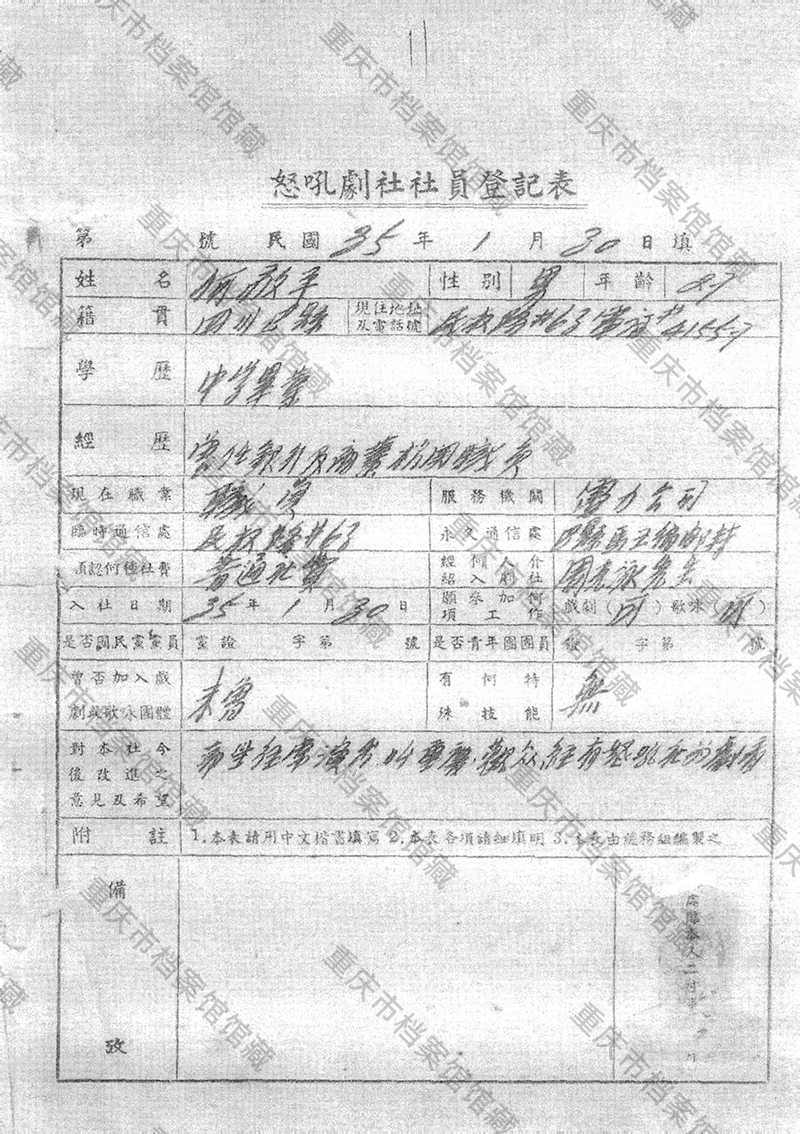 怒吼劇社社員登記表
第 號 民國 35 年 1 月 30 日填
姓名 何敬平 性別 男 年齡
籍貫 四川巴縣 現住地址及電話號 民权路#63 電話#41557
學歷 中学畢業
經歷 曾任銀行及商業机関職員
現在職業 職員 服務機關 電力公司
臨時通信處 民权路#63 永久通信處 巴縣
願認何種社費 普通社費 經何人介紹入劇社 周
入社日期 35 年 1 月 30 日 願參加何項工作 戲劇(可)歌咏(可)
是否國民黨黨員 黨證 字第 號 是否青年團團員 證 字第 號
曾否加入戲劇與歌咏團體 未曾 有何特殊技能 無
對本社今後改進之意見及希望 希望經常演出 觀众
附註 1.本表請用中文楷書填寫 2.本表各項請細填明 3.本表由總務組編製之
備
攷
處 本人二寸
重庆市档案馆馆藏